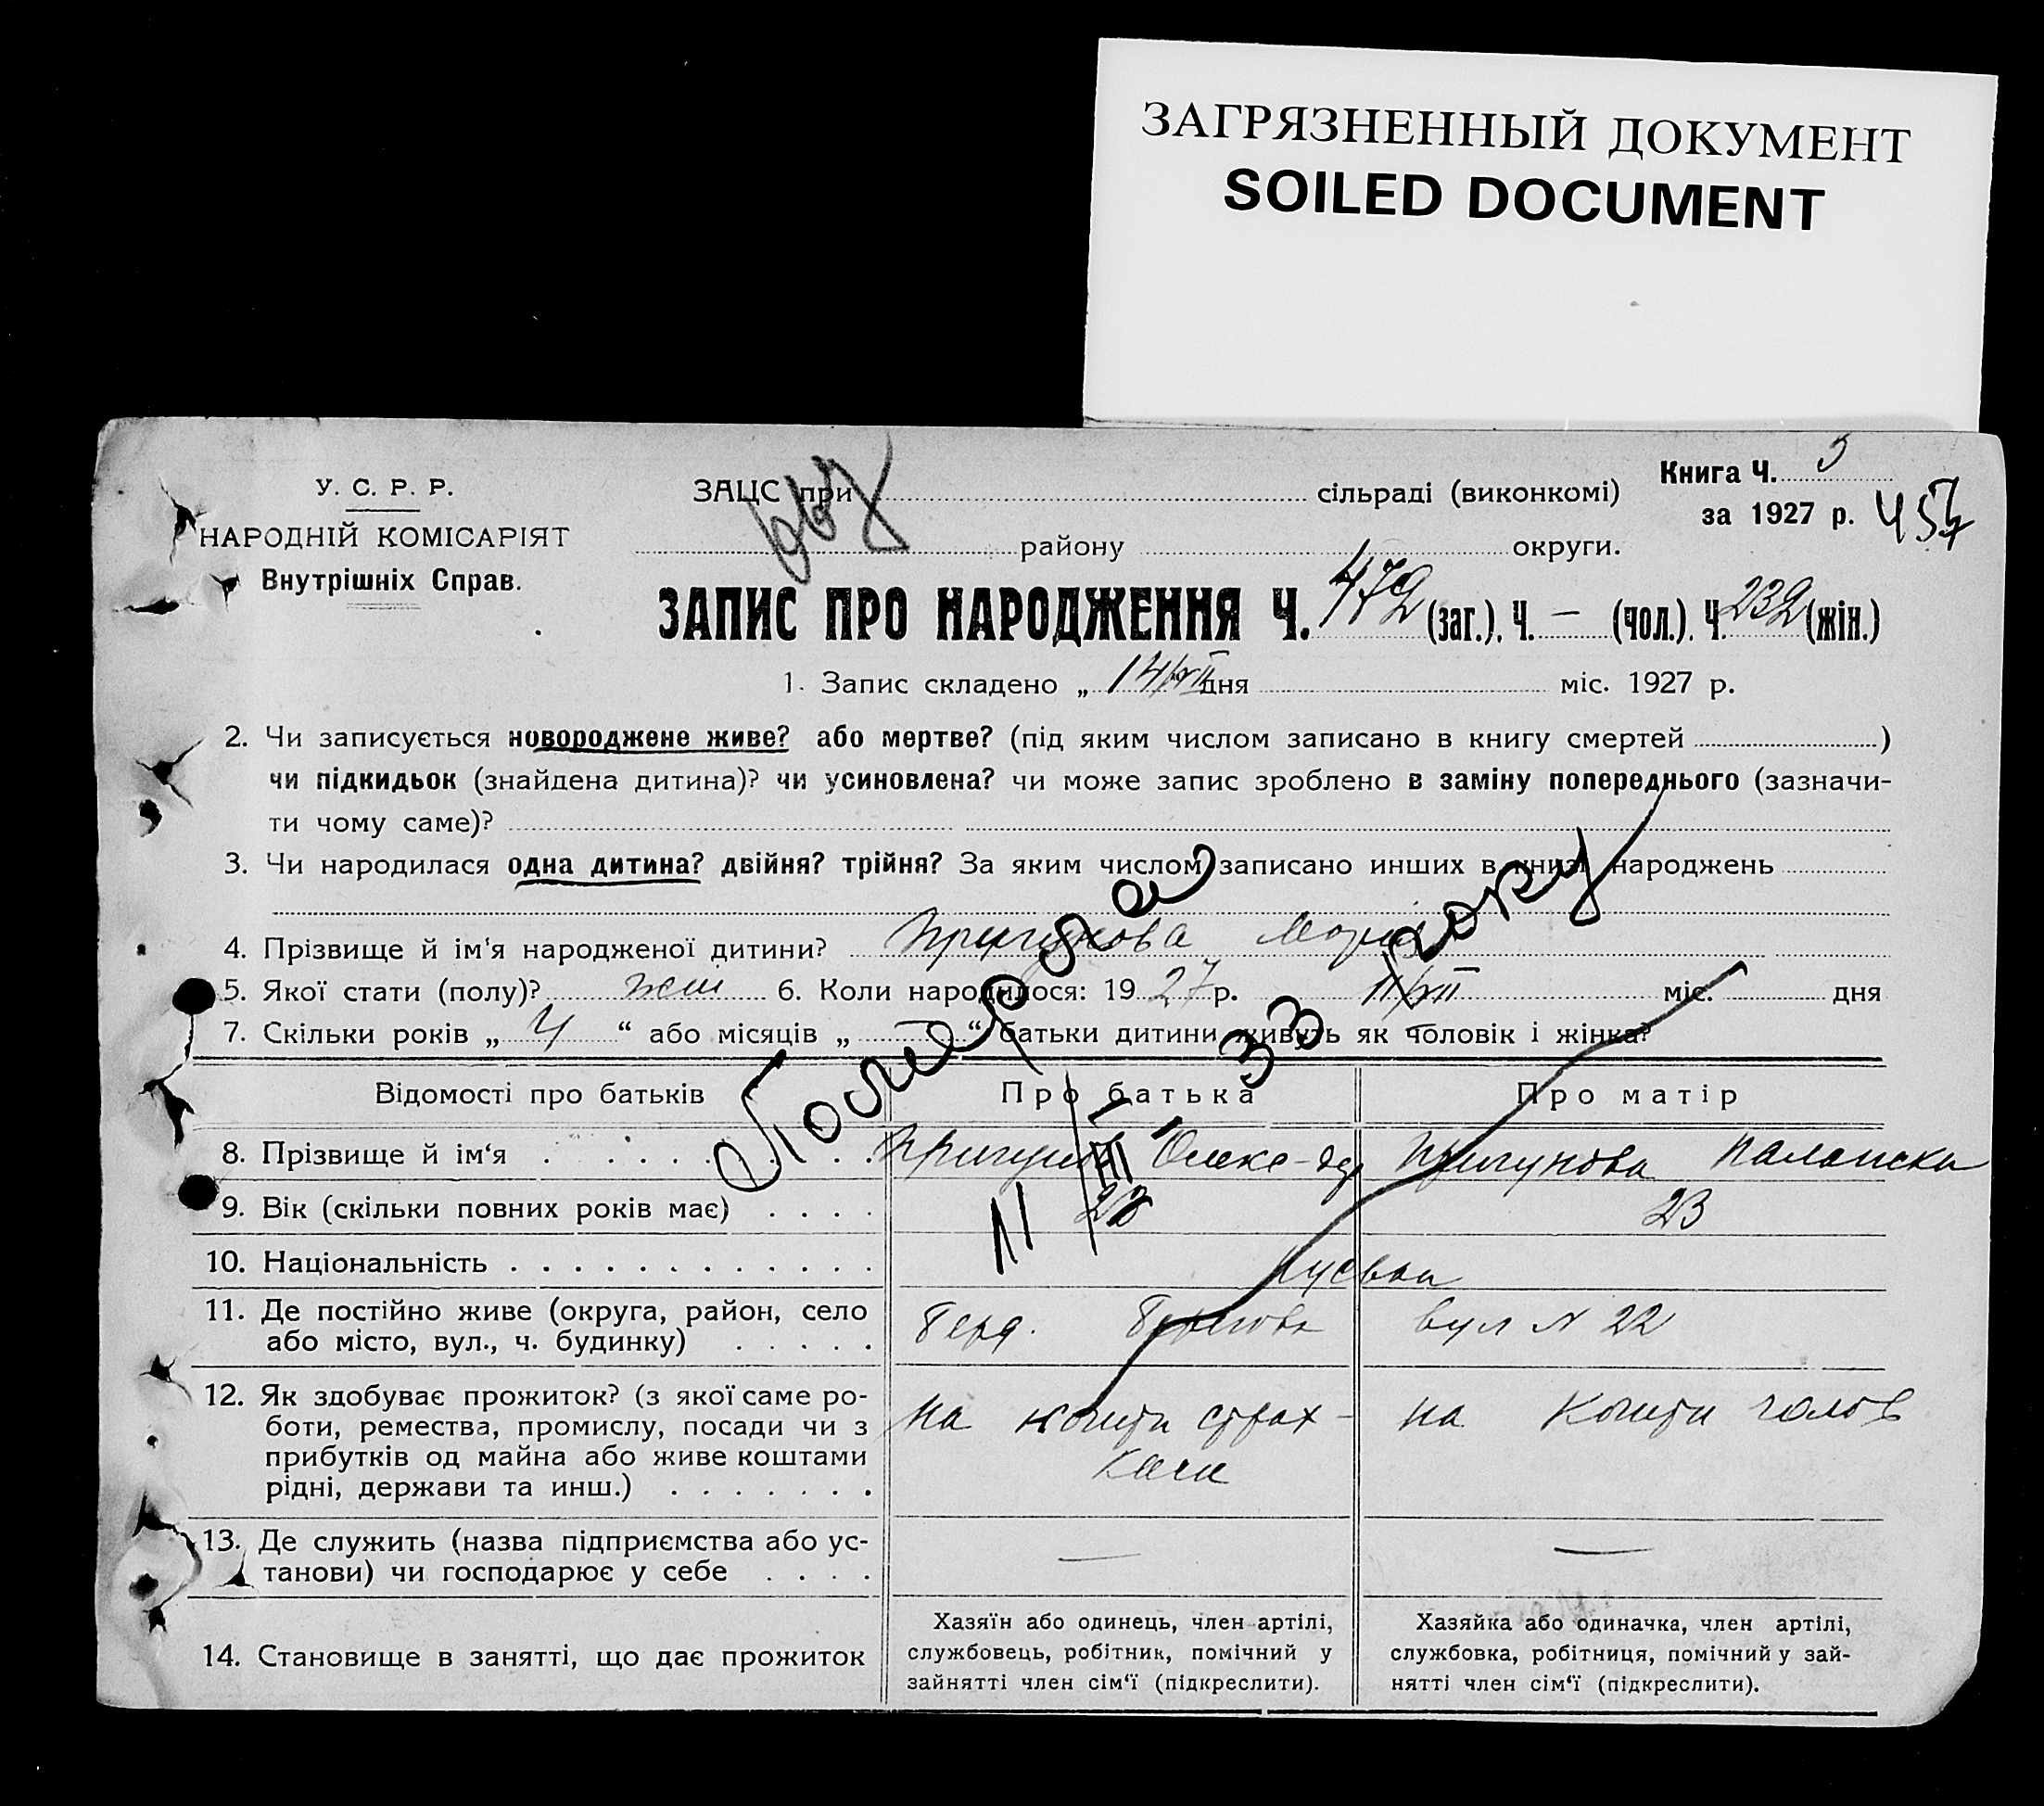 ЗАГРЯЗНЕННЫЙ ДОКУМЕНТ
SOILED DOCUMENT
У. С. Р. Р.
НАРОДНІЙ КОМІСАРІЯТ
Внутрішніх Справ.
ЗАЦС при сільраді (виконкомі)
району округи.
Книга Ч. 3
за 1927 р. 457
ЗАПИС ПРО НАРОДЖЕННЯ Ч. 472 (заг.). Ч. — (чол.). Ч. 232 (жін.)
1. Запис складено „ 14/VII дня міс. 1927 р.
2. Чи записується новороджене живе? або мертве? (під яким числом записано в книгу смертей )
чи підкидьок (знайдена дитина)? чи усиновлена? чи може запис зроблено в заміну попереднього (зазначи-
ти чому саме)?
3. Чи народилася одна дитина? двійня? трійня? За яким числом записано инших в книзі народжень
4. Прізвище й ім'я народженої дитини? Пригунова Марія
5. Якої стати (полу)? жін 6. Коли народилося: 1927 р. 11/VII міс. дня
7. Скільки років „ 4 “ або місяців „ — “ батьки дитини живуть як чоловік і жінка?
Померла
11/III 33 року
Відомості про батьків Про батька Про матір
8. Прізвище й ім‘я Пригунов Олекс-др Пригунова Палажка
9. Вік (скільки повних років має) 23
10. Національність
11. Де постійно живе (округа, район, село
або місто, вул., ч. будинку) Берд. вул N 22
12. Як здобуває прожиток? (з якої саме ро-
боти, ремества, промислу, посади чи з
прибутків од майна або живе коштами
рідні, держави та инш.) На кошти страх-каси На кошти чолов
13. Де служить (назва підприємства або ус-
танови) чи господарює у себе — —
14. Становище в занятті, що дає прожиток
Хазяїн або одинець, член артілі,
службовець, робітник, помічний у
зайнятті член сім‘ї (підкреслити).
Хазяйка або одиначка, член артілі,
службовка, робітниця, помічний у зай-
нятті член сім‘ї (підкреслити).